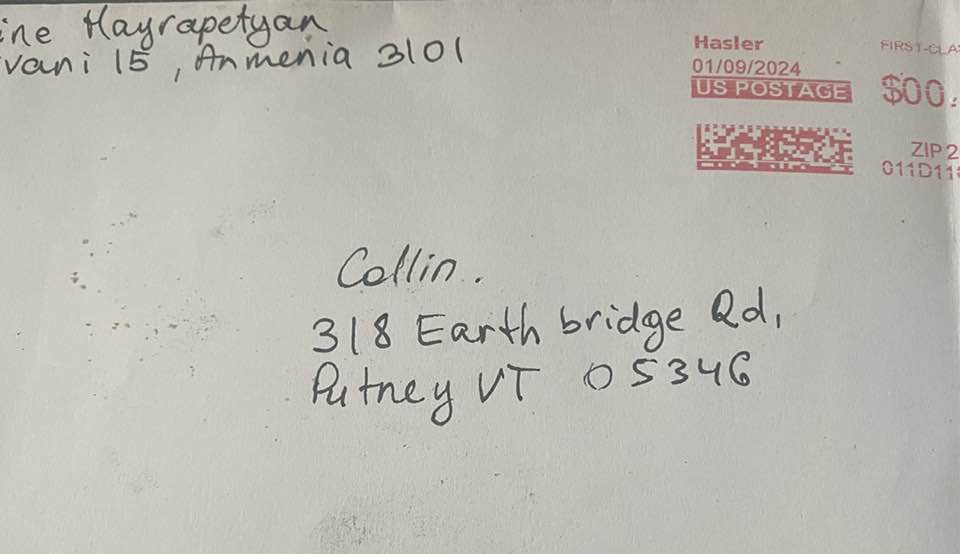 ine Hayrapetyan
vani 15, Armenia 3101
Hasler
FIRST-CLA
01/09/2024
US POSTAGE
$00.
ZIP 2
011D11
Collin.
318 Earth bridge Rd,
Putney VT 05346